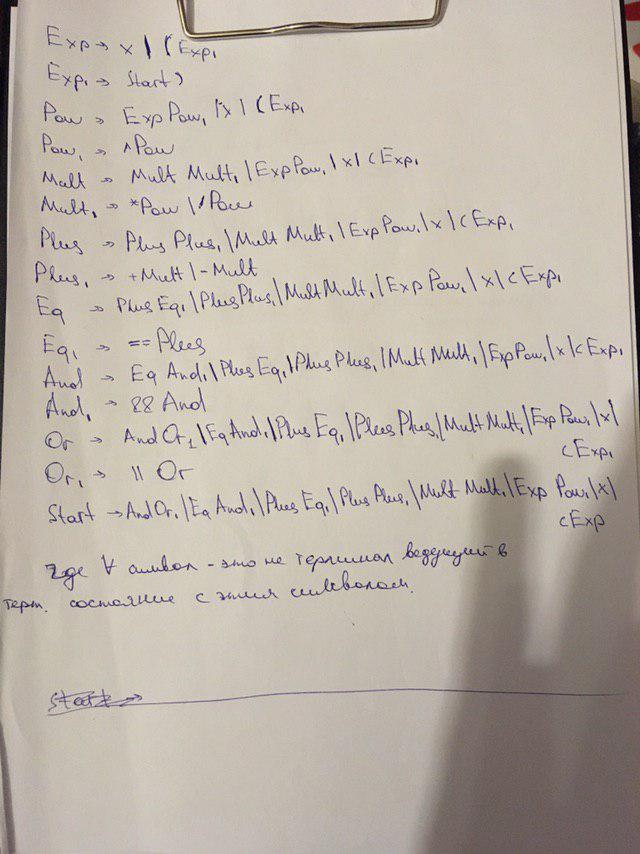 Exp → x | (Exp₁
Exp₁ → Start)
Pow → Exp Pow₁ | x | (Exp₁
Pow₁ → ^Pow
Mult → Mult Mult₁ | Exp Pow₁ | x | (Exp₁
Mult₁ → *Pow | /Pow
Plus → Plus Plus₁ | Mult Mult₁ | Exp Pow₁ | x | (Exp₁
Plus₁ → +Mult | -Mult
Eq → Plus Eq₁ | Plus Plus₁ | Mult Mult₁ | Exp Pow₁ | x | (Exp₁
Eq₁ → == Plus
And → Eq And₁ | Plus Eq₁ | Plus Plus₁ | Mult Mult₁ | Exp Pow₁ | x | (Exp₁
And₁ → && And
Or → And Or₁ | Eq And₁ | Plus Eq₁ | Plus Plus₁ | Mult Mult₁ | Exp Pow₁ | x |
(Exp₁
Or₁ → || Or
Start → And Or₁ | Eq And₁ | Plus Eq₁ | Plus Plus₁ | Mult Mult₁ | Exp Pow₁ | x |
(Exp
где ∀ символ - это не терминал ведущий в
терм. состояние с этим символом.
Start →